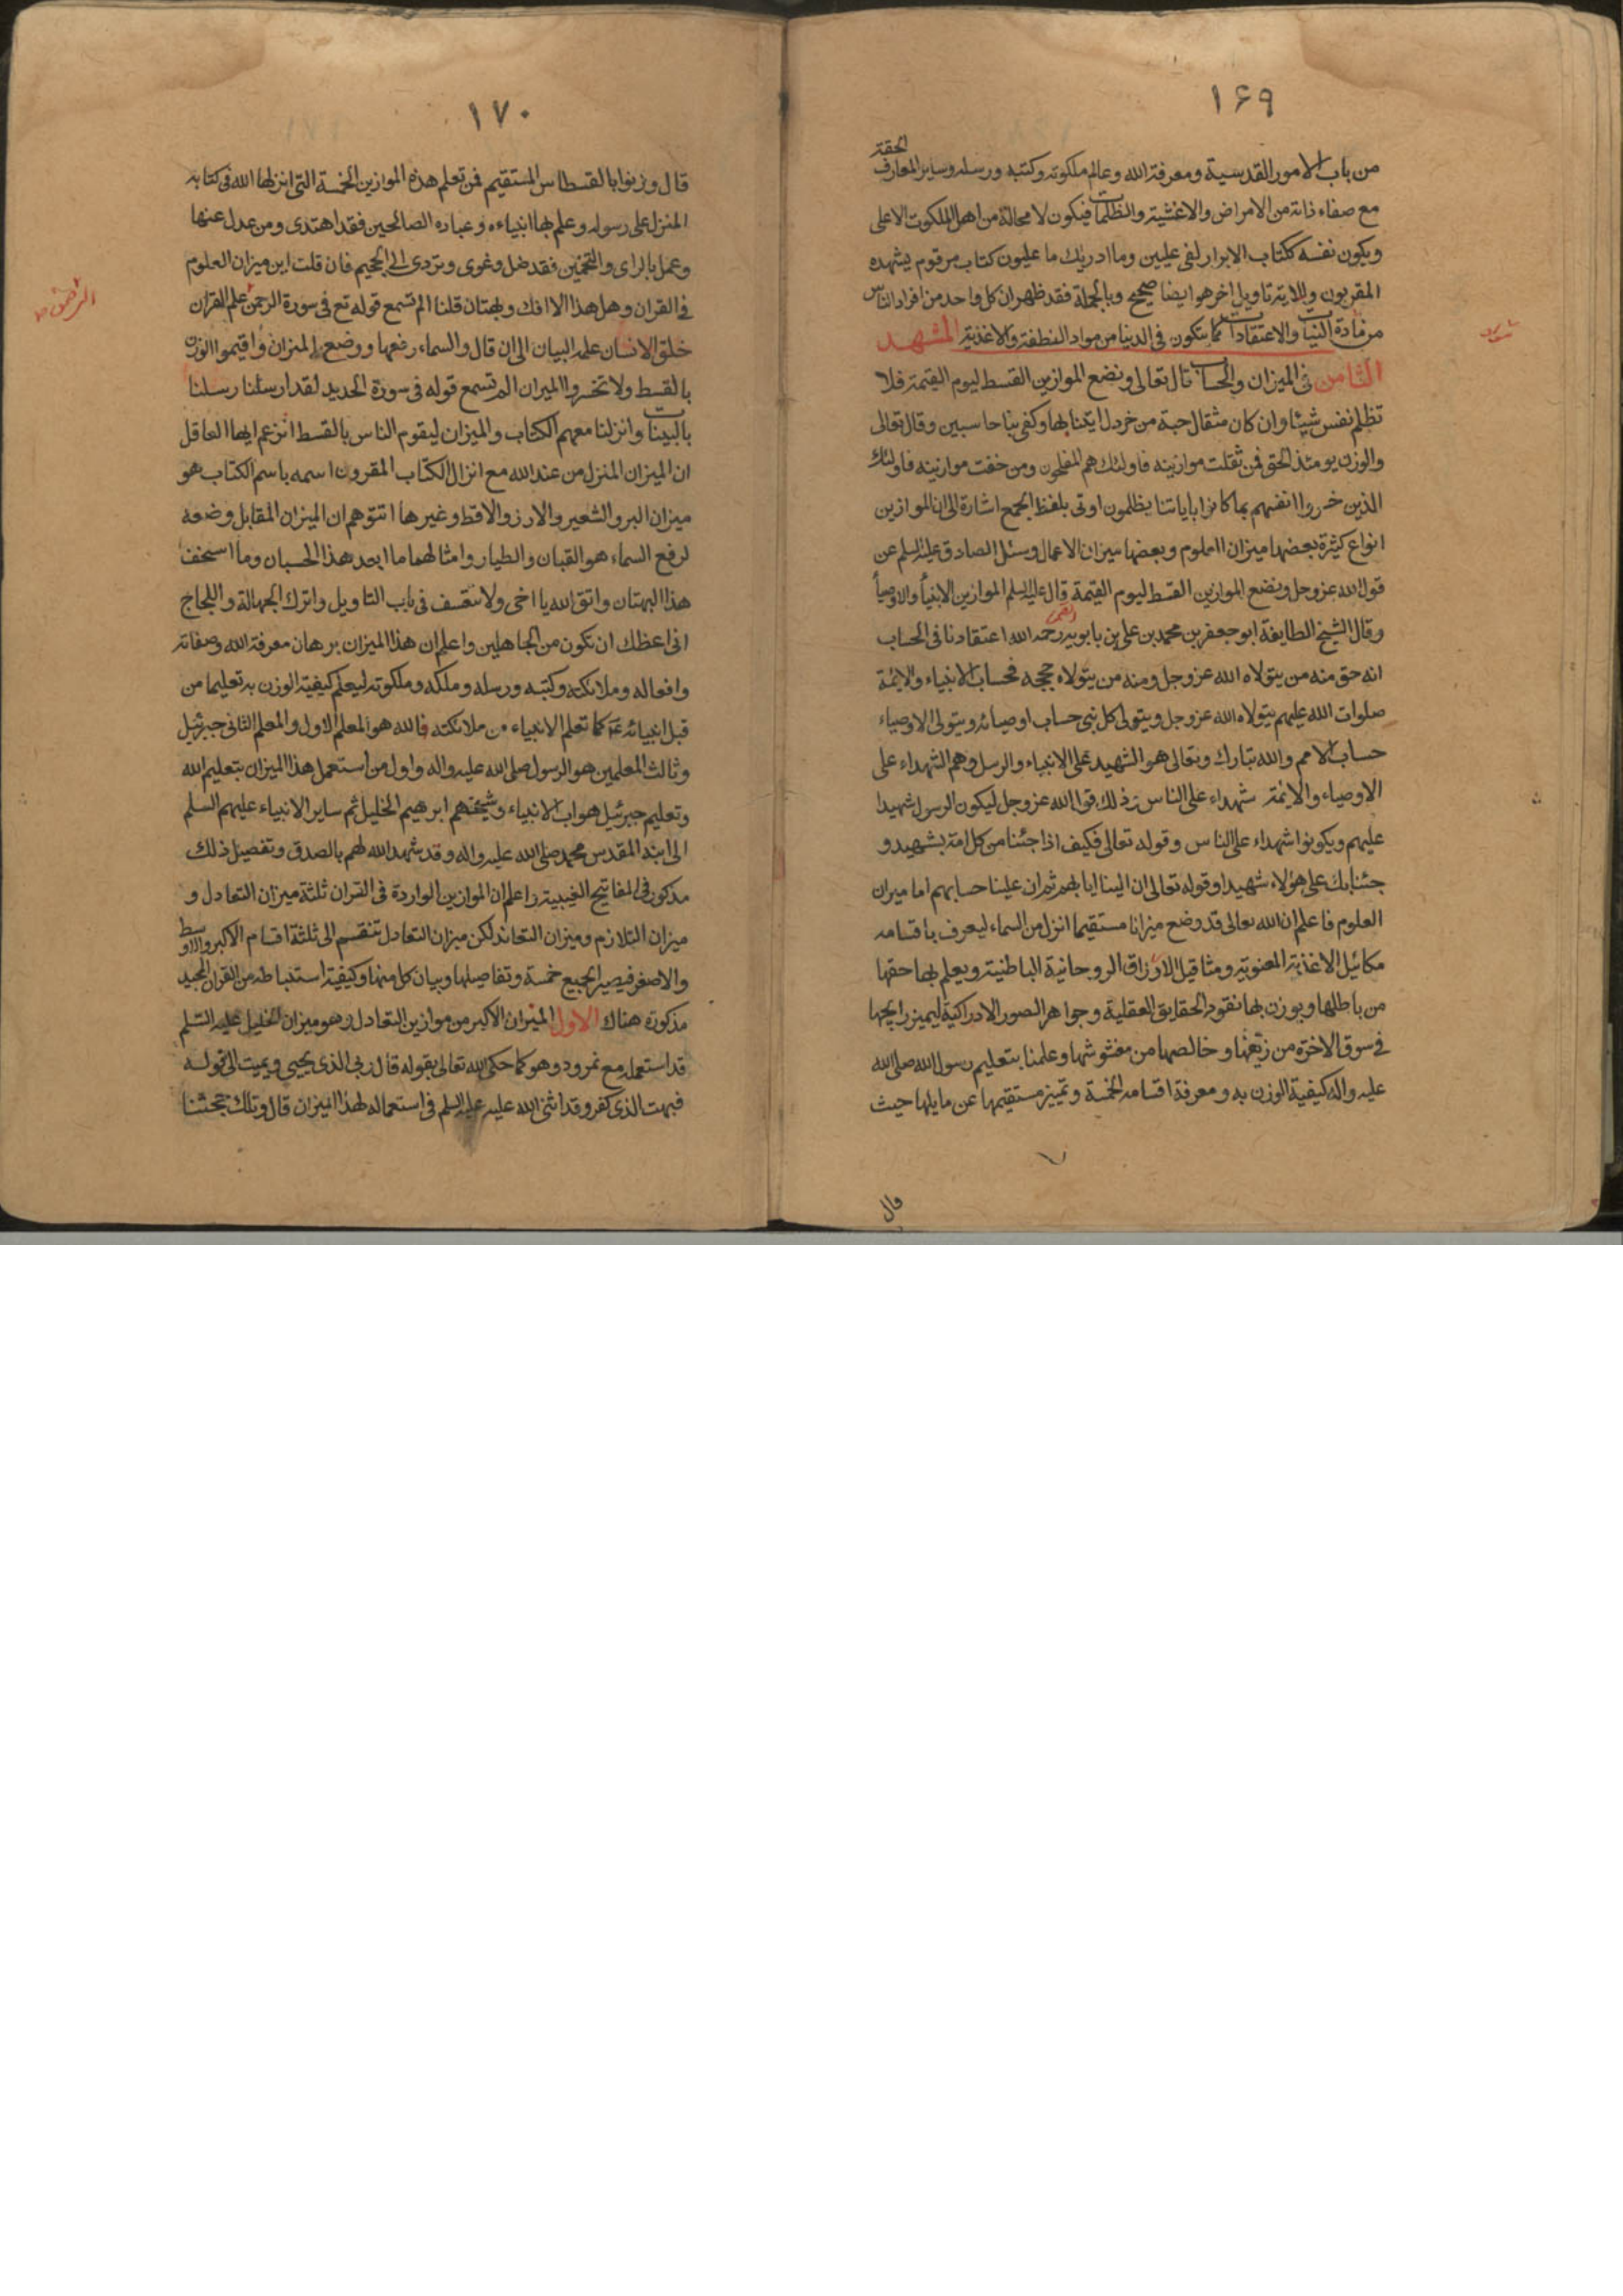 ١۶٩
من باب الامور القدسية ومعرفة الله وعالم ملكوته وكتبه ورسله وساير المعارف الحقة
مع صفاء ذاته من الامراض والاغشية والظلمات فيكون لا محالة من اهل الملكوت الاعلى
ويكون نفسه ككتاب الابرار لفى عليين وما ادريك ما عليون كتاب مرقوم يشهده
المقربون وللاية تاويل اخر هو ايضا صحيح وبالجملة فقد ظهر ان كل واحد من افراد الناس
من مادة النيات والاعتقادات كما يتكون فى الدنيا من مواد النطفة والاغذية المشهد
الثامن فى الميزان والحساب قال تعالى ونضع الموازين القسط ليوم القيمة فلا
تظلم نفس شيئا وان كان مثقال حبة من خردل ايتنا بها وكفى بنا حاسبين وقال تعالى
والوزن يومئذ الحق فمن ثقلت موازينه فاولئك هم المفلحون ومن خفت موازينه فاولئك
الذين خسروا انفسهم بما كانوا باياتنا يظلمون اوتى بلفظ الجمع اشارة الى ان الموازين
انواع كثيرة بعضها ميزان العلوم وبعضها ميزان الاعمال وسئل الصادق عليه السلم عن
قول الله عز وجل ونضع الموازين القسط ليوم القيمة قال عليه السلم الموازين الانبيا والاوصيا
وقال الشيخ الطايفة ابو جعفر بن محمد بن على بن بابويه القمى رحمه الله اعتقادنا فى الحساب
انه حق منه من يتولاه الله عز وجل ومنه من يتولاه حججه فحساب الانبياء والائمة
صلوات الله عليهم يتولاه الله عز وجل ويتولى كل نبى حساب اوصيائه ويتولى الاوصياء
حساب الامم والله تبارك وتعالى هو الشهيد على الانبياء والرسل وهم الشهداء على
الاوصياء والائمة شهداء على الناس وذلك قوله الله عز وجل ليكون الرسول شهيدا
عليهم ويكونوا شهداء على الناس وقوله تعالى فكيف اذا جئنا من كل امة بشهيد و
جئنا بك على هؤلاء شهيدا وقوله تعالى ان الينا ايابهم ثم ان علينا حسابهم اما ميزان
العلوم فاعلم ان الله تعالى قد وضع ميزانا مستقيما انزل من السماء ليعرف باقسامه
مكائيل الاغذية المعنوية ومثاقيل الارزاق الروحانية الباطنية ويعلم بها حقها
من باطلها ويوزن بها نقود الحقايق العقلية وجواهر الصور الادراكية ليميز رايجها
فى سوق الاخرة من زيفها وخالصها من مغشوشها وعلمنا بتعليم رسول الله صلى الله
عليه واله كيفية الوزن به ومعرفة اقسامه الخمسة وتمييز مستقيمها عن مايلها حيث
قال
١٧٠
قال وزنوا بالقسطاس المستقيم فمن تعلم هذه الموازين الخمسة التى انزلها الله فى كتابه
المنزل على رسوله وعلم بها انبياءه وعباده الصالحين فقد اهتدى ومن عدل عنها
وعمل بالراى والتخمين فقد ضل وغوى وتردى الى الجحيم فان قلت اين ميزان العلوم
فى القران وهل هذا الا افك وبهتان قلنا الم تسمع قوله تع فى سورة الرحمن علم القران
خلق الانسان علمه البيان الى ان قال والسماء رفعها ووضع الميزان واقيموا الوزن
بالقسط ولا تخسروا الميزان الم تسمع قوله فى سورة الحديد لقد ارسلنا رسلنا
بالبينات وانزلنا معهم الكتاب والميزان ليقوم الناس بالقسط اتزعم ايها العاقل
ان الميزان المنزل من عند الله مع انزال الكتاب المقرون اسمه باسم الكتاب هو
ميزان البر والشعير والارز والاقط وغيرها اتتوهم ان الميزان المقابل وضعه
لرفع السماء هو القبان والطيار وامثالهما ما ابعد هذا الحسبان وما اسخف
هذا البهتان واتق الله يا اخى ولا تتعسف فى باب التاويل واترك الجهالة واللجاج
انى اعظك ان تكون من الجاهلين واعلم ان هذا الميزان برهان معرفة الله وصفاته
وافعاله وملائكته وكتبه ورسله وملكه وملكوته ليعلم كيفية الوزن به تعليما من
قبل انبيائه ع‍ كما تعلم الانبياء من ملائكته فالله هو المعلم الاول والمعلم الثانى جبرئيل
وثالث المعلمين هو الرسول صلى الله عليه واله واول من استعمل هذا الميزان بتعليم الله
وتعليم جبرئيل هو اب الانبياء وشيخهم ابرهيم الخليل ثم ساير الانبياء عليهم السلم
الى ابنه المقدس محمد صلى الله عليه واله وقد شهد الله لهم بالصدق وتفصيل ذلك
مذكور فى المفاتيح الغيبية واعلم ان الموازين الواردة فى القران ثلثة ميزان التعادل و
ميزان التلازم وميزان التعاند لكن ميزان التعادل تنقسم الى ثلثة اقسام الاكبر والاوسط
والاصغر فيصير الجميع خمسة وتفاصيلها وبيان كل منها وكيفية استنباطه من القران المجيد
مذكورة هناك الاول الميزان الاكبر من موازين التعادل وهو ميزان الخليل عليه السلم
قد استعمله مع نمرود وهو كما حكى الله تعالى بقوله قال ربى الذى يحيى ويميت الى قوله
فبهت الذى كفر وقد اثنى الله عليه عليه السلم فى استعماله لهذا الميزان قال وتلك حجتنا